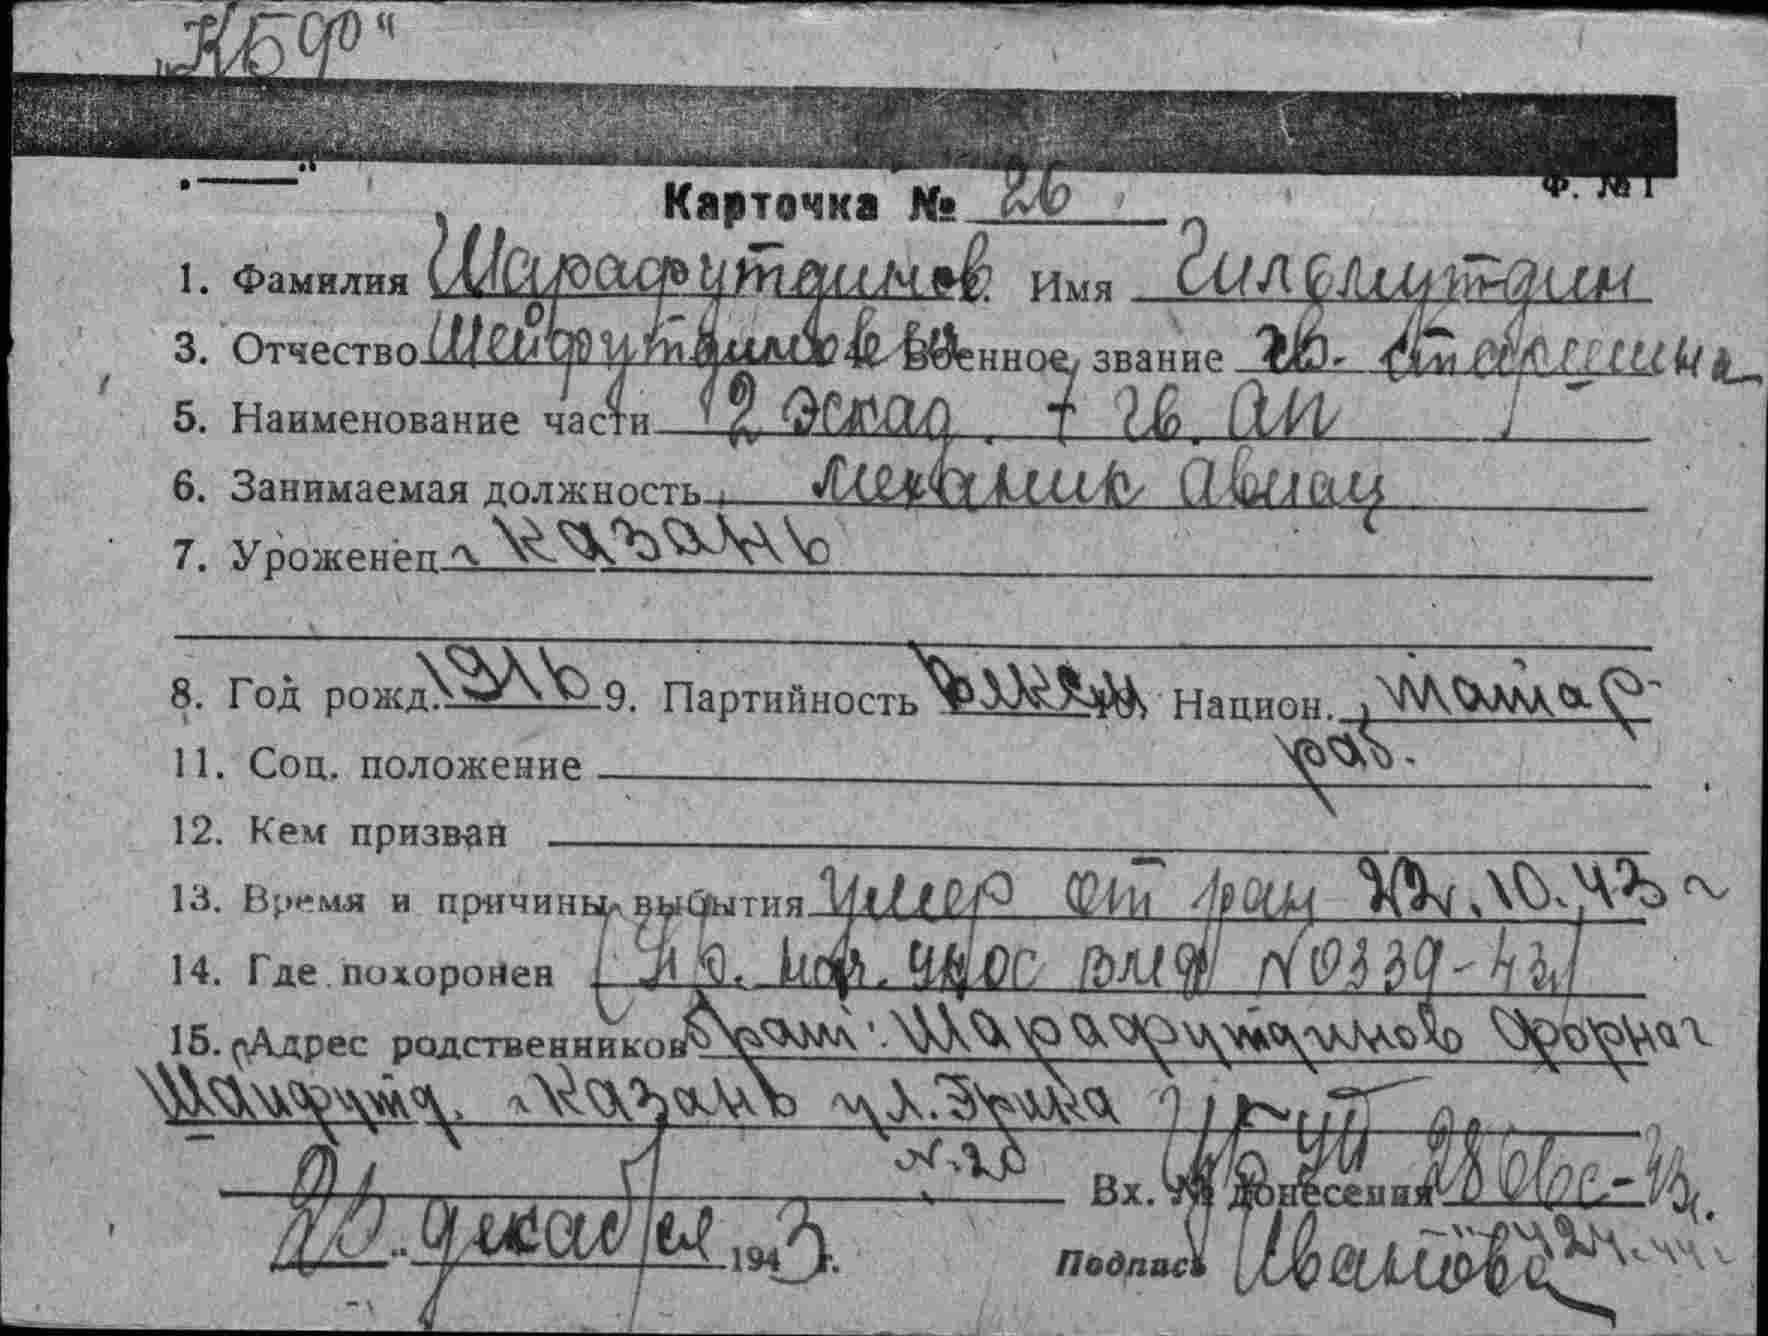 „КБФ“
Ф. № 1
Карточка № 26
1. Фамилия Шарафутдинов. Имя Гильмутдин
3. Отчество Шейфутдинов Военное звание гв. старшина
5. Наименование части 2 эскад. 7 гв. АП
6. Занимаемая должность механик авиац
7. Уроженец г. Казань
8. Год рожд. 9. Партийность Национ. татар
11. Соц. положение раб.
12. Кем призван
13. Время и причины выбытия умер от ран 10.43 г
14. Где похоронен № 0339-43
15. Адрес родственников брат: Шарафутдинов
г. Казань ул.
Вх. № донесения 28 43
25. декабря 1943 г.
Подпись Иванова